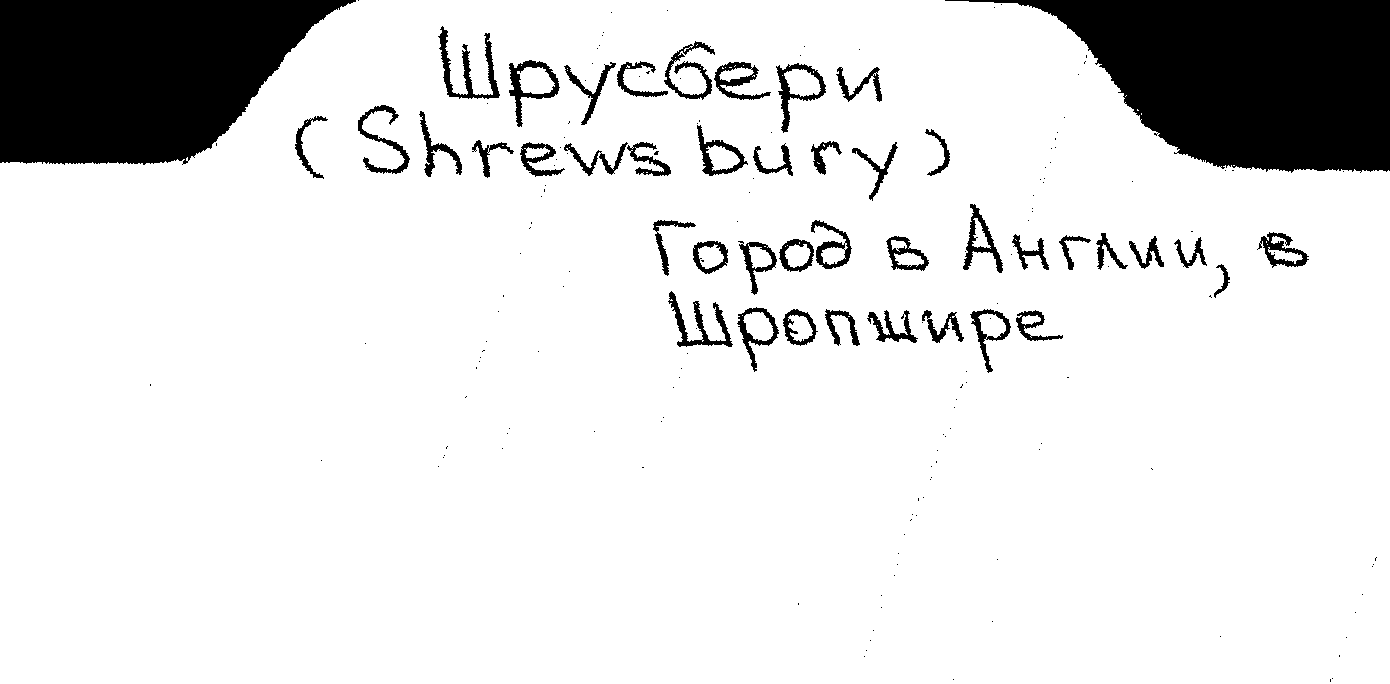 Шрусбери
(Shrewsbury)
Город в Англии, в
Шропшире